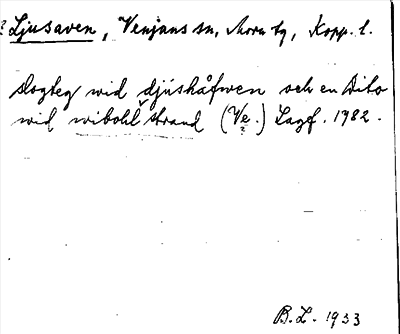 ? Ljusaven, Venjans sn, Mora tg, Kopp. l.
slogteg wid djúshåfwen och en Dito
wid wibohl strand (Ve.) Lagf. 1782.
?
B.L. 1933